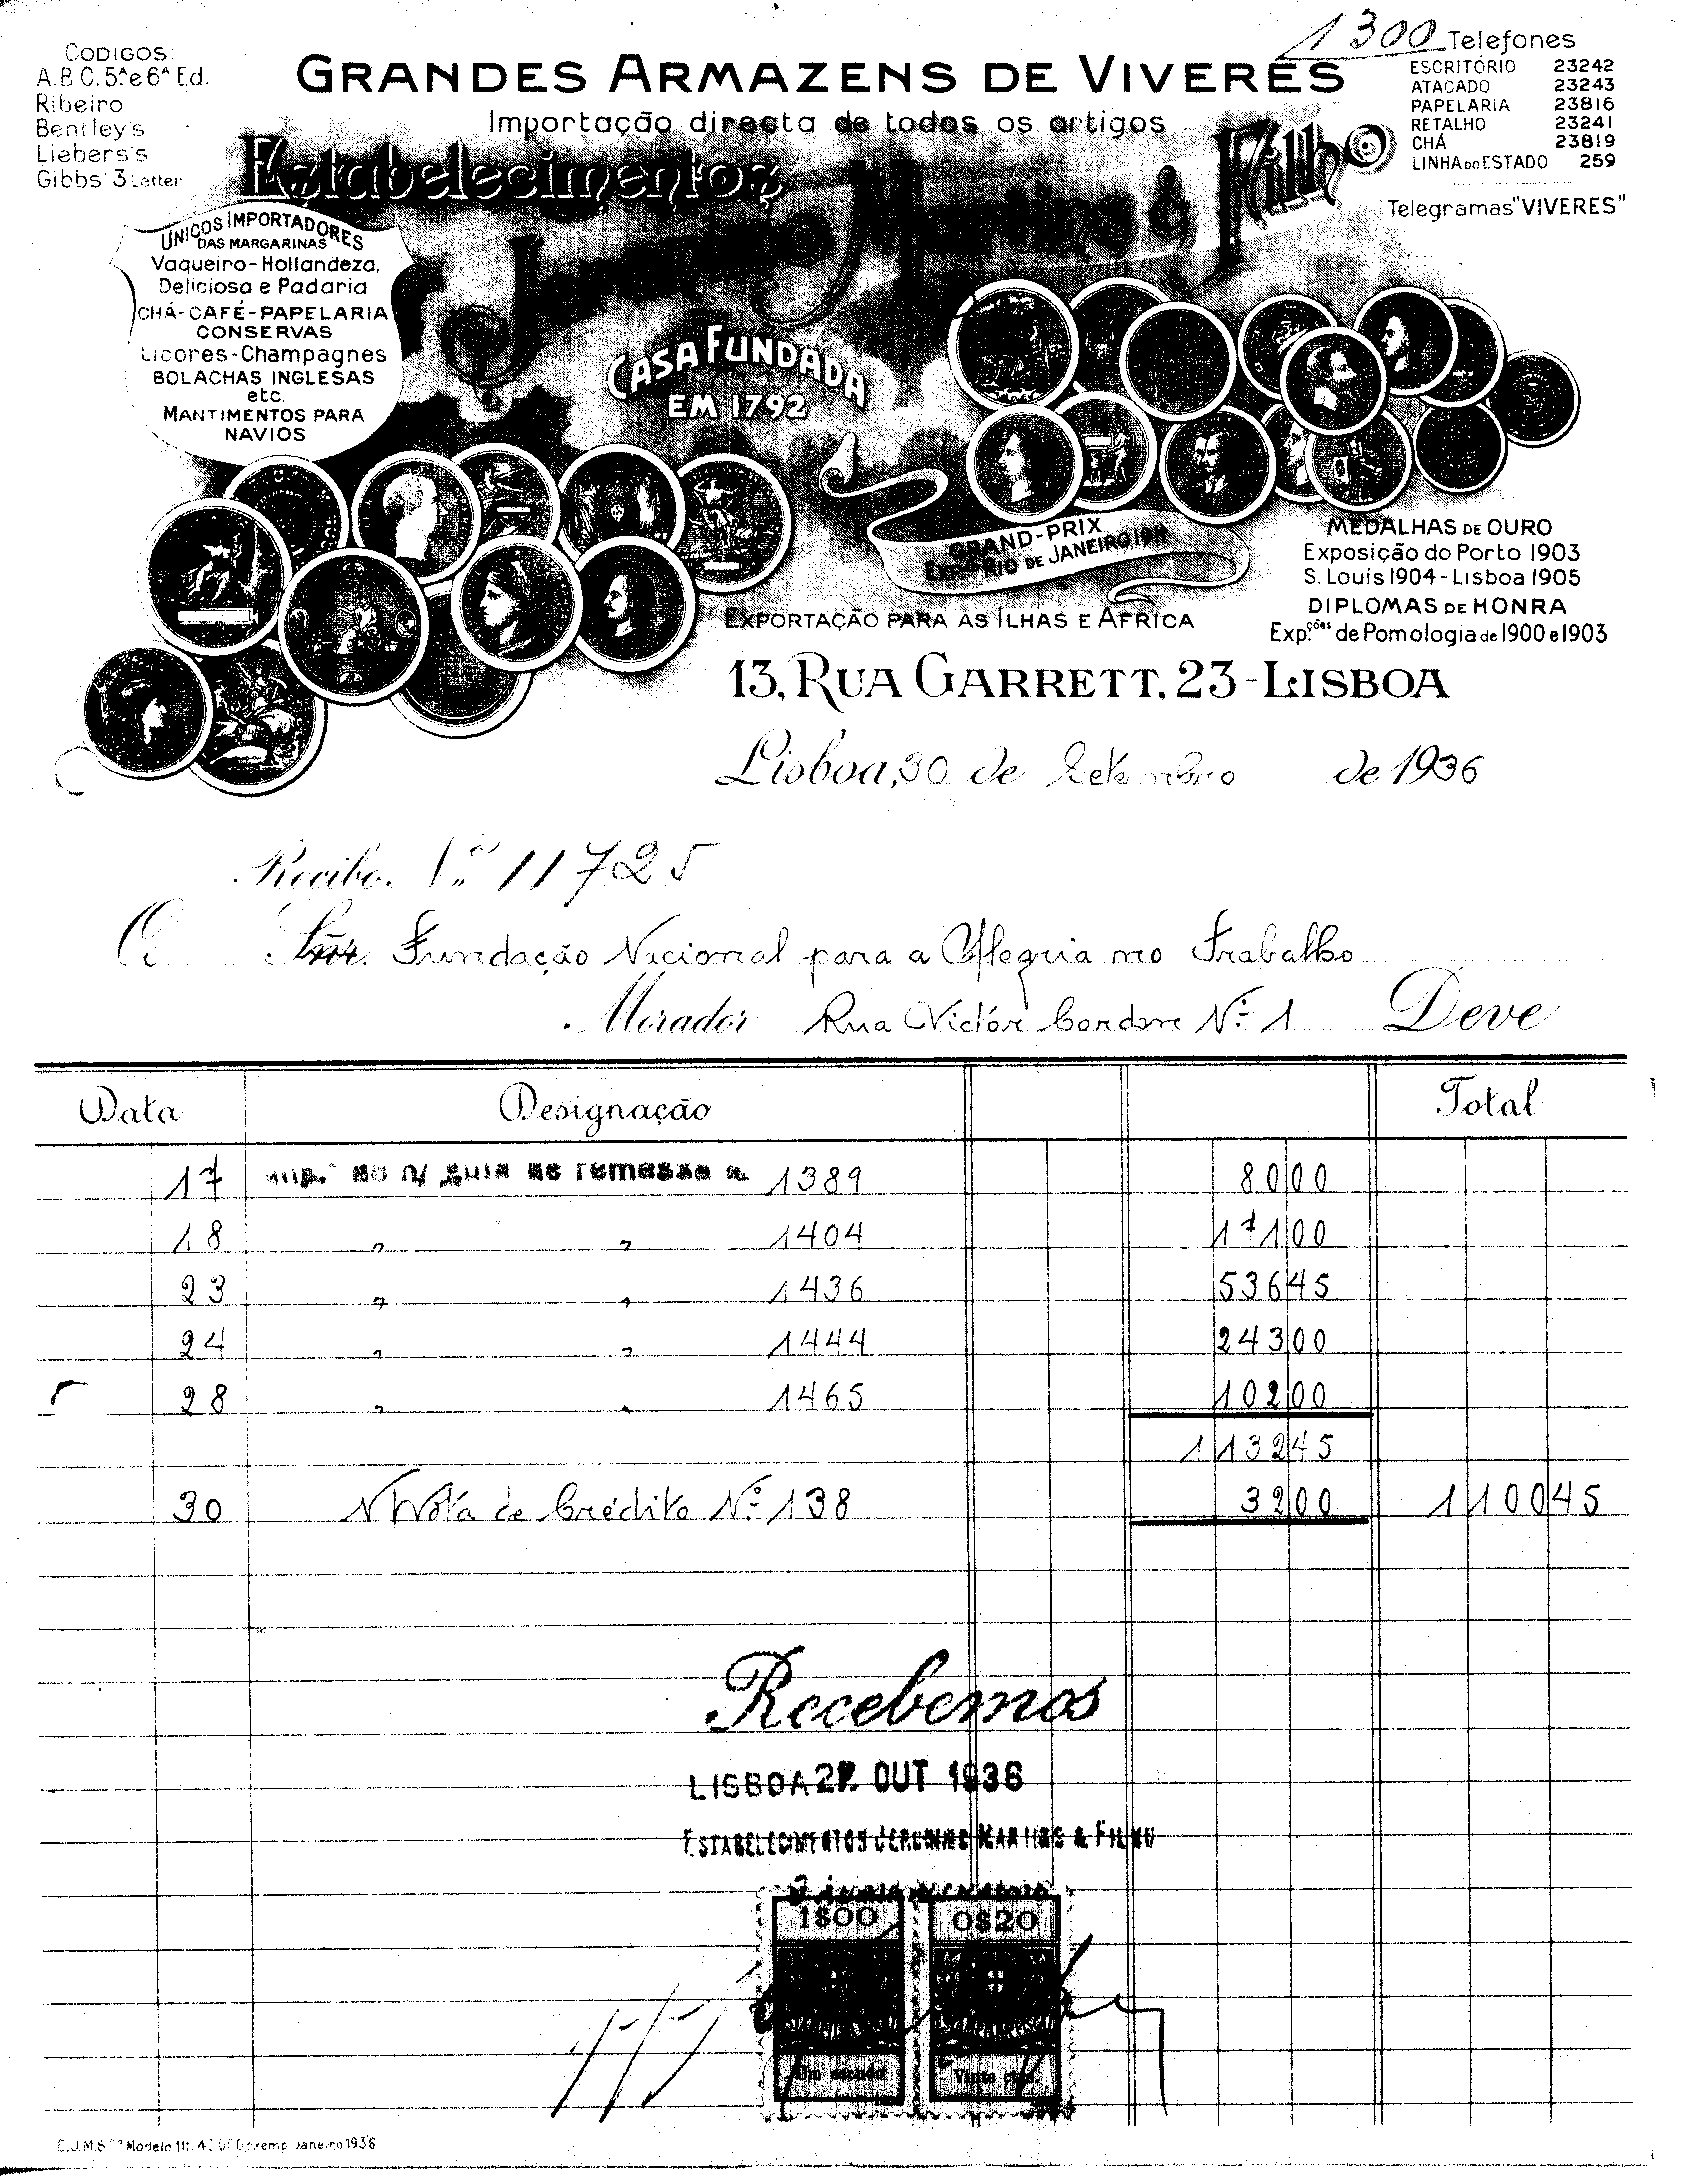 1300
CODIGOS:
A.B.C. 5ª e 6ª Ed.
Ribeiro
Bentley's
Liebers's
Gibbs' 3 Letter
GRANDES ARMAZENS DE VIVERES
Importação directa de todos os artigos
Estabelecimentos
Jeronimo Martins & Filho
Telefones
ESCRITÓRIO 23242
ATACADO 23243
PAPELARIA 23816
RETALHO 23241
CHÁ 23819
LINHA DO ESTADO 259
Telegramas "VIVERES"
UNICOS IMPORTADORES
DAS MARGARINAS
Vaqueiro-Hollandeza,
Deliciosa e Padaria
CHÁ-CAFÉ-PAPELARIA
CONSERVAS
Licores-Champagnes
BOLACHAS INGLESAS
etc.
MANTIMENTOS PARA
NAVIOS
CASA FUNDADA
EM 1792
GRAND-PRIX
RIO DE JANEIRO
MEDALHAS DE OURO
Exposição do Porto 1903
S. Louis 1904-Lisboa 1905
DIPLOMAS DE HONRA
Exp.ções de Pomologia de 1900 e 1903
EXPORTAÇÃO PARA AS ILHAS E AFRICA
13, RUA GARRETT, 23-LISBOA
Lisboa, 30 de Setembro de 1936
Recibo Nº 11725
Snr. Fundação Nacional para a Alegria no Trabalho
Morador Rua Victór Cordon Nº 1 Deve
Data Designação Total
17 imp. de n/ guia de remessa n. 1389 8000
18 " " 1404 17100
23 " " 1436 53645
24 " " 1444 24300
28 " " 1465 10200
113245
30 N/ Nota de Crédito Nº 138 3200 110045
Recebemos
LISBOA 27 OUT 1936
ESTABELECIMENTOS JERONIMO MARTINS & FILHO
1$00 0$20
Um escudo Vinte